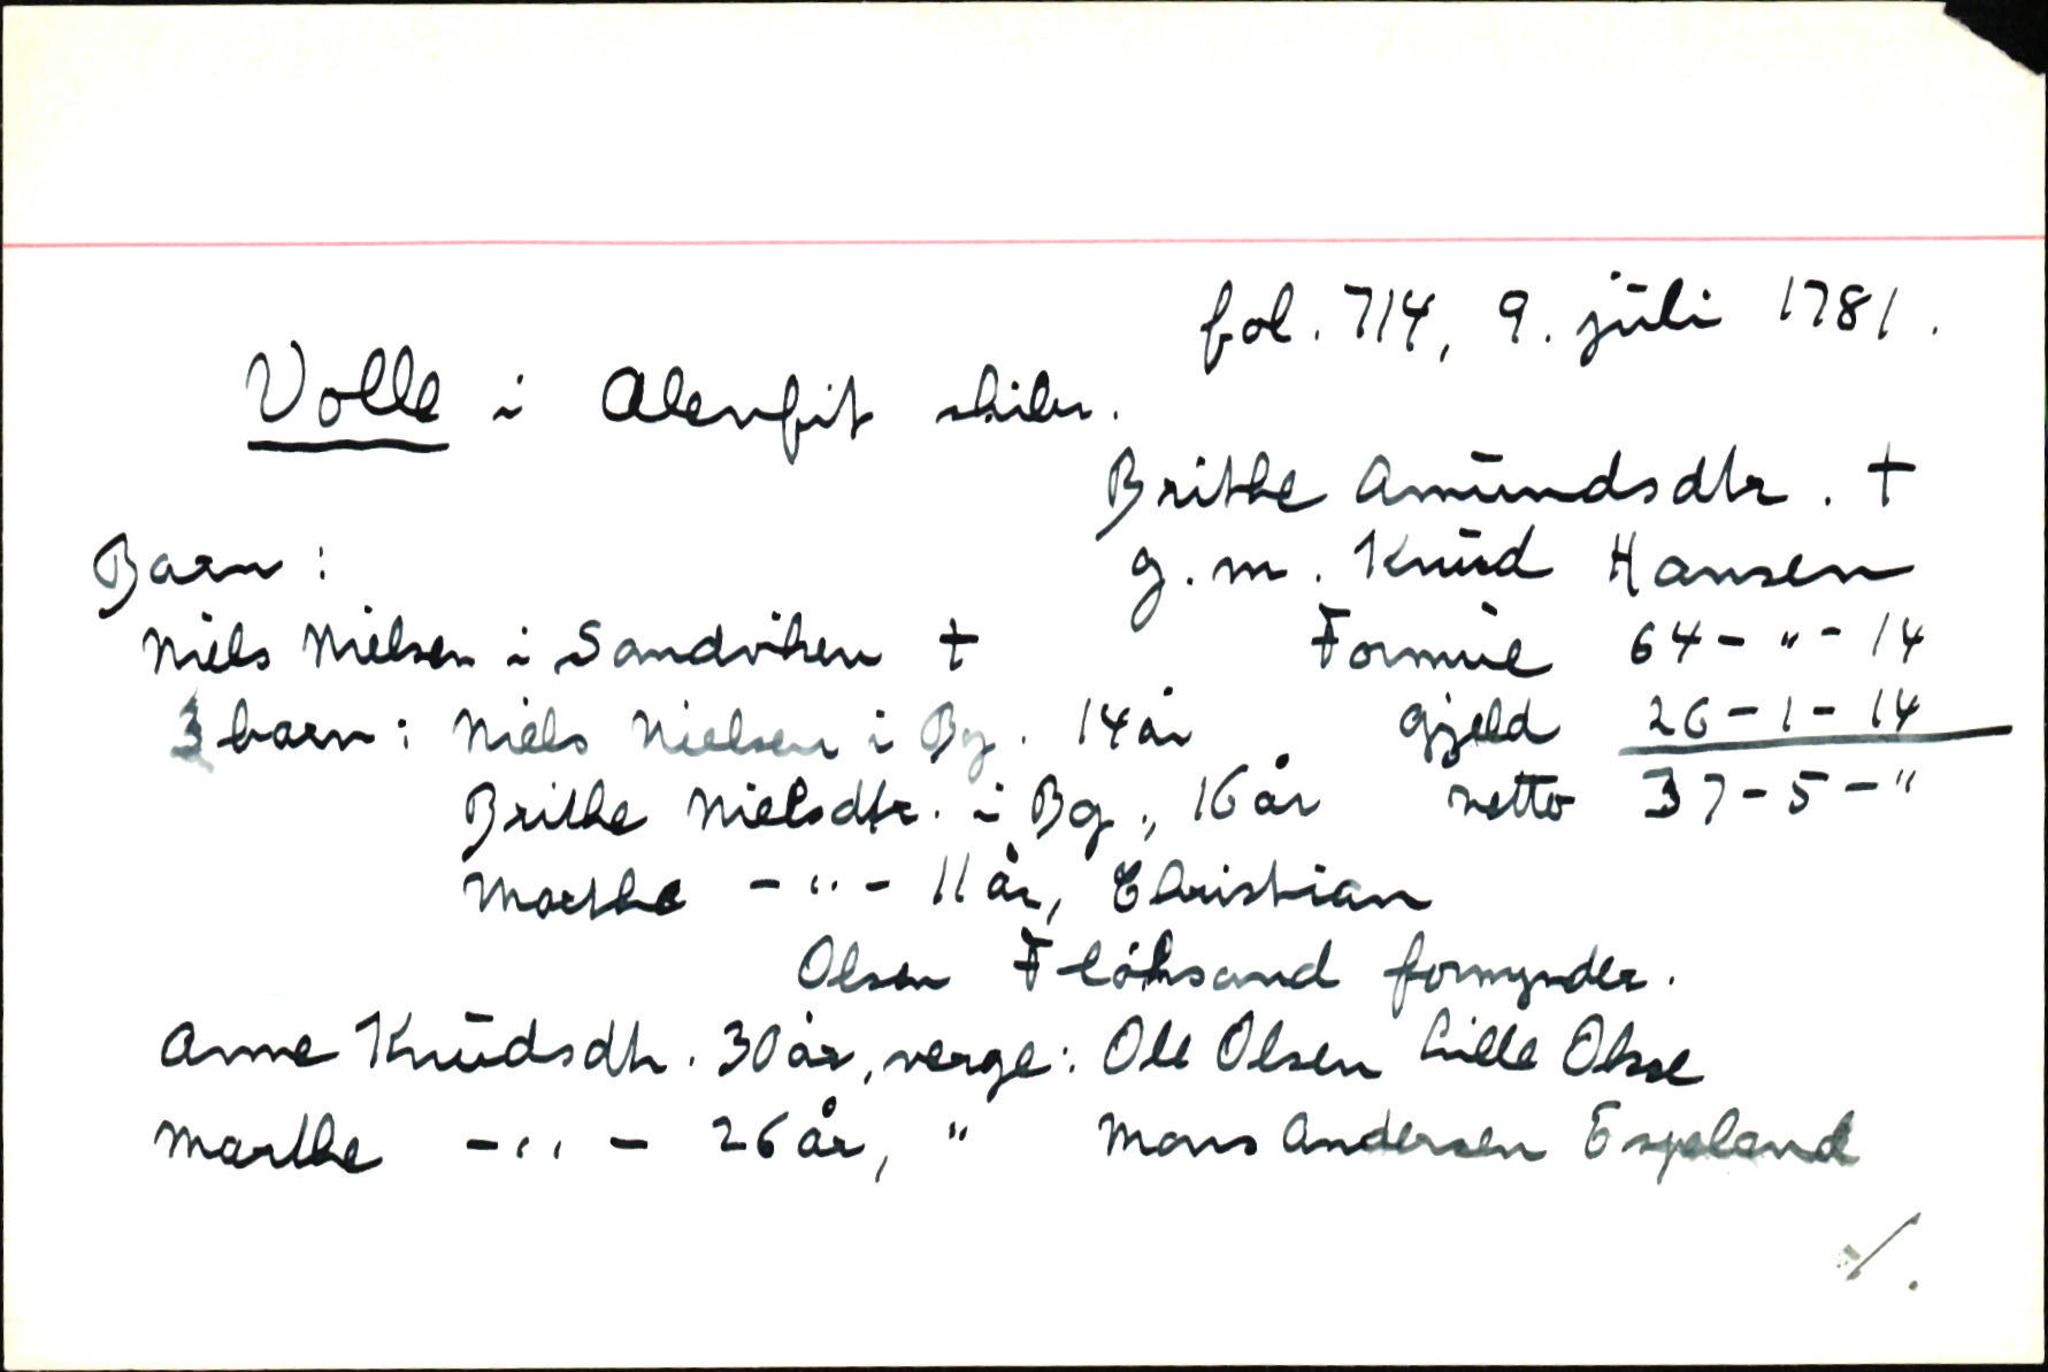 fol. 714, 9. juli 1781.
Volle i Alenfit skibr.
Brithe Amundsdtr. †
g. m. Knud Hansen
Barn:
Niels Nielsen i Sandviken †
Formue 64 - " - 14
3 barn: Niels Nielsen i Bg. 14 år
Gjeld 26 - 1 - 14
Brithe Nielsdtr. i Bg., 16 år
netto 37 - 5 - "
Marthe - " - 11 år, Christian
Olsen Fløksand formynder.
Anne Knudsdtr. 30 år, verge: Ole Olsen Lille Okse
Marthe - " - 26 år, " Mons Andersen Espeland
./.